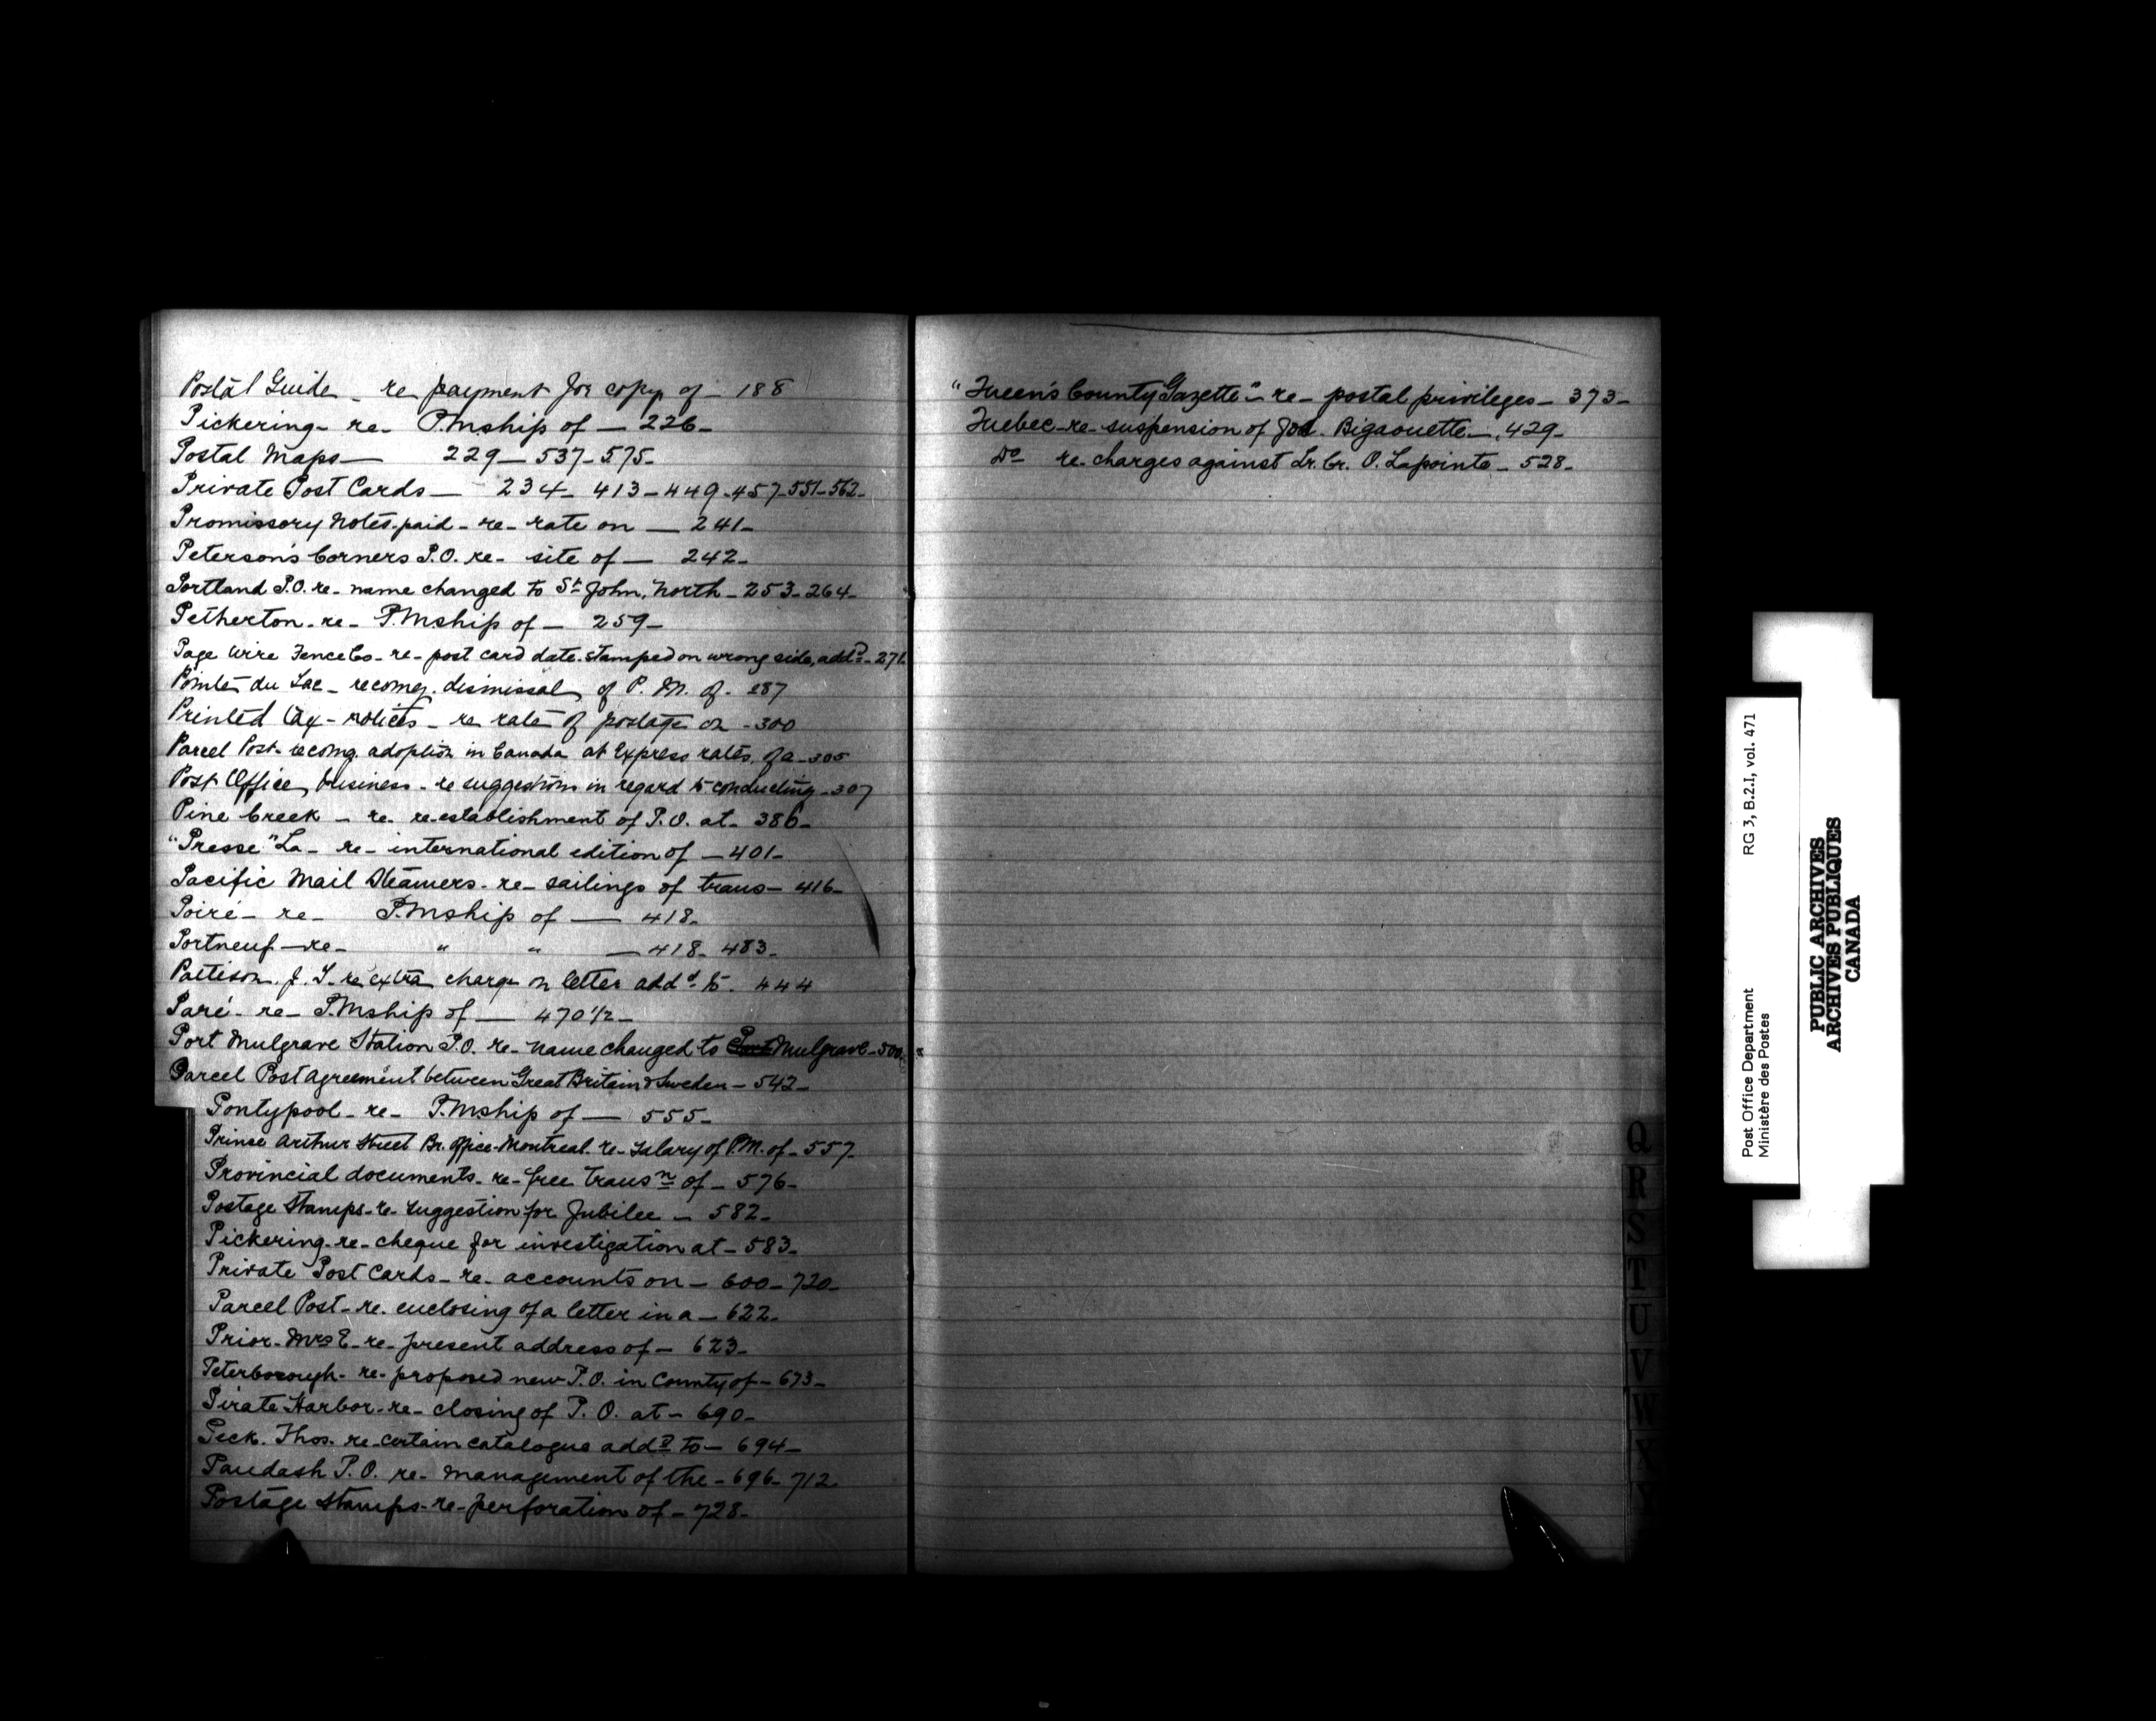 Postal Guide - re payment for copy of - 188
Pickering - re - P.Mship of - 226 -
Postal Maps - 229 - 537 - 575 -
Private Post Cards - 234 - 413 - 449 - 457 - 551 - 562 -
Promissory Notes, paid - re - rate on - 241 -
Peterson's Corners P.O. re - site of - 242 -
Portland P.O. re - name changed to St John, North - 253 - 264 -
Petherton - re - P.Mship of - 259 -
Page Wire Fence Co - re - post card date stamped on wrong side, addd - 271
Pointe du Lac - recomg. dismissal of P. M. of - 287
Printed Tax - notices - re rate of postage on - 300
Parcel Post - recomg. adoption in Canada at Express rates, of a - 305
Post Office business - re suggestions in regard to conducting - 307
Pine Creek - re - re-establishment of P.O. at - 386 -
"Presse" La - re - international edition of - 401 -
Pacific Mail Steamers - re - sailings of trans - 416 -
Poiré - re - P.Mship of - 418 -
Portneuf - re - " " - 418 - 483 -
Pattison, J. re extra charge on letter addd to - 444
Paré - re - P.Mship of - 470 1/2 -
Port Mulgrave Station P.O. re - name changed to Mulgrave - 500
Parcel Post Agreement between Great Britain & Sweden - 542 -
Pontypool - re - P.Mship of - 555 -
Prince Arthur Street Br. Office - Montreal - re - salary of P.M. of - 557 -
Provincial documents - re - free transn of - 576 -
Postage Stamps - re - suggestion for Jubilee - 582 -
Pickering - re - cheque for investigation at - 583 -
Private Post Cards - re - accounts on - 600 - 720 -
Parcel Post - re - enclosing of a letter in a - 622 -
Prior - Mrs E - re - present address of - 623 -
Peterborough - re - proposed new P.O. in County of - 673 -
Pirate Harbor - re - closing of P. O. at - 690 -
Peck, Thos. re - certain catalogue addd to - 694 -
Paudash P.O. re - management of the - 696 - 712
Postage Stamps - re - perforation of - 728 -
"Queen's County Gazette" - re - postal privileges - 373 -
Quebec - re - suspension of Bigaouette - 429 -
Do re - charges against Lr. Cr. O. Lapointe - 528 -
Q
R
S
T
U
V
W
X
Y
Post Office Department RG 3, B.2.I, vol. 471
Ministère des Postes
PUBLIC ARCHIVES
ARCHIVES PUBLIQUES
CANADA